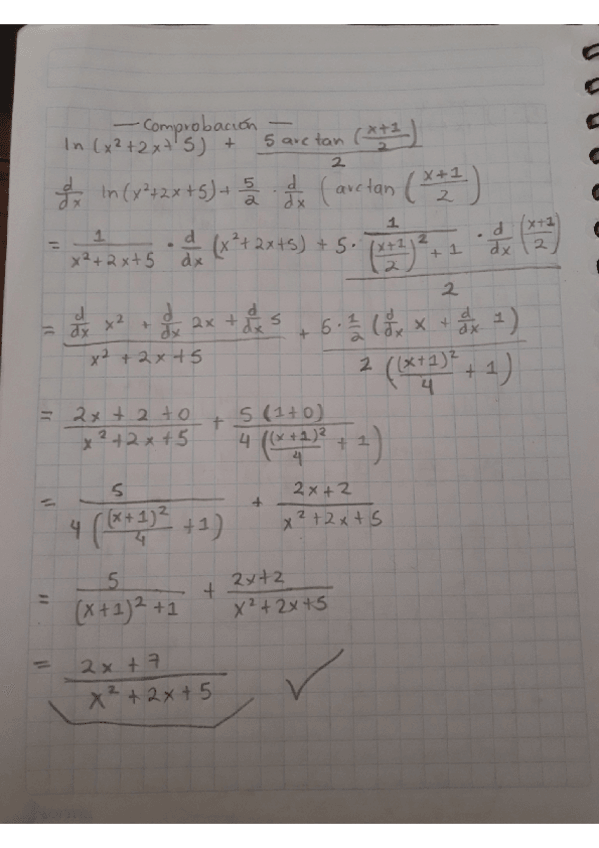 — Comprobación —
ln (x²+2x+5) + (5 arctan ((x+1)/2))/2
d/dx ln (x²+2x+5) + 5/2 · d/dx (arctan ((x+1)/2)
= 1/(x²+2x+5) · d/dx (x²+2x+5) + (5 · 1/(((x+1)/2)² + 1) · d/dx ((x+1)/2))/2
= (d/dx x² + d/dx 2x + d/dx 5)/(x² + 2x + 5) + (5 · 1/2 (d/dx x + d/dx 1))/(2 ((x+1)²/4 + 1))
= (2x + 2 + 0)/(x² + 2x + 5) + (5 (1+0))/(4 ((x+1)²/4 + 1))
= 5/(4 ((x+1)²/4 + 1)) + (2x + 2)/(x² + 2x + 5)
= 5/((x+1)² + 1) + (2x+2)/(x² + 2x + 5)
= (2x + 7)/(x² + 2x + 5) ✓